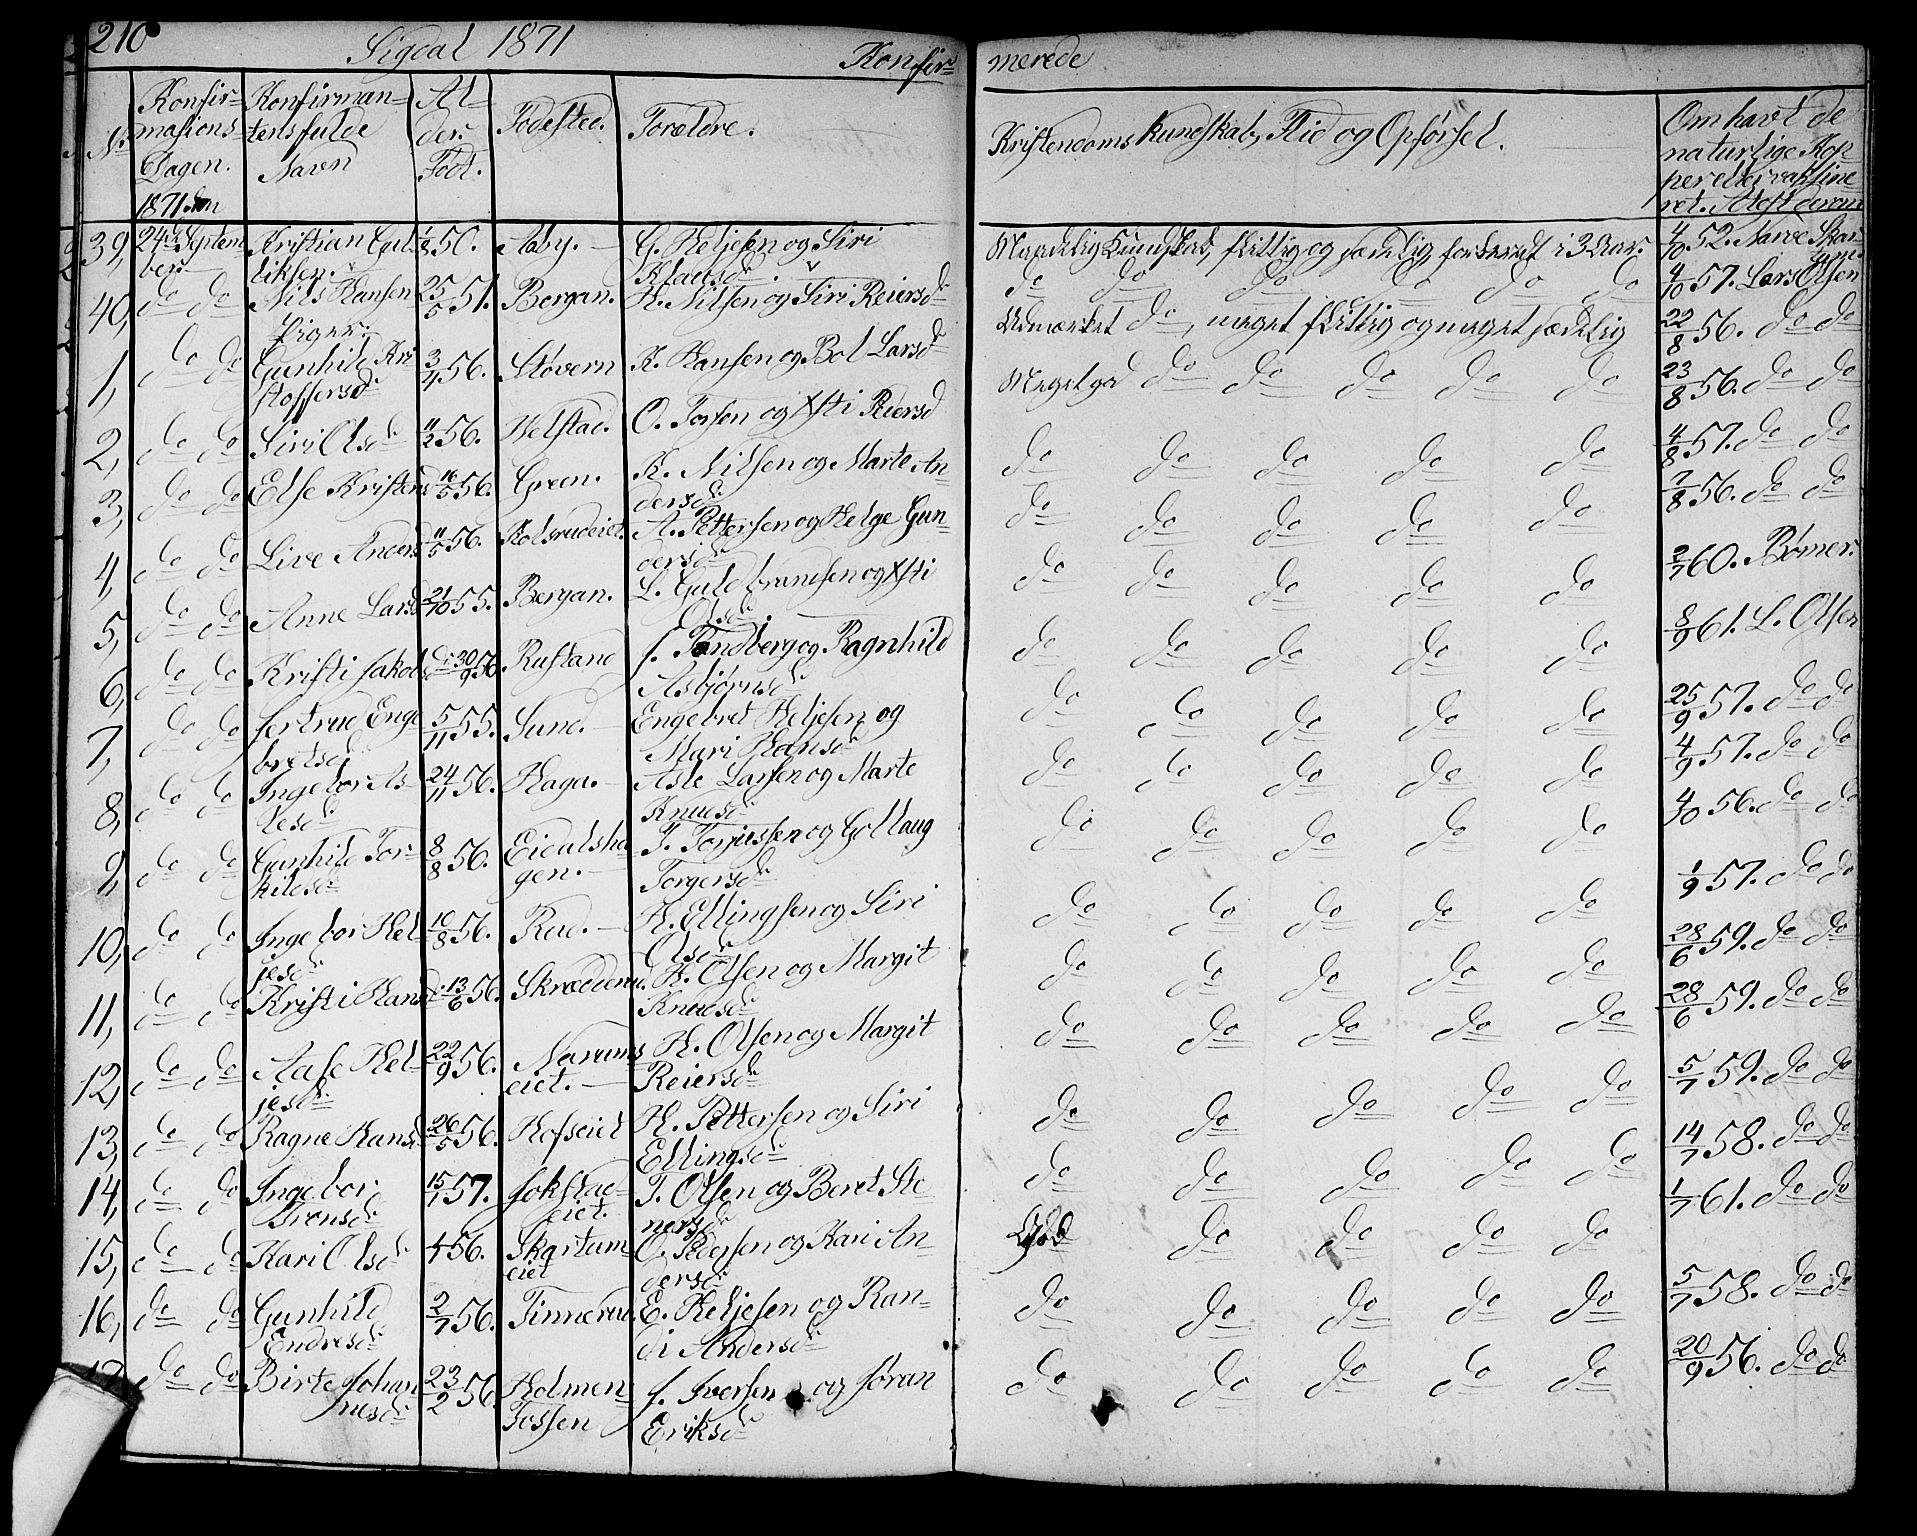 210 Sigdal 1871 Konfir- merede
No. Konfir- masions Dagen. 1871 den
Konfirman- tens fulde Navn
Al- der. Född.
Födested.
Foreldre.
Kristendoms kundskab, Flid og Opförsel.
Om havt de naturlige Kop- per eller vaksine- ret. Attest derom
39, 24de Septem- ber Kristian Gul- liksen. 50. Aaby. G. Heljesen og Siri Klausd. flittig og sædelig, i 3 Aar. 4/10 52. Narve
40, do do Nils Hansen 25/5 51. Bergan. H. Nilsen og Siri Reiersd. do do do do do do 4/10 57. Lars Olsen
Piger:
1, do do Gunhild Kri- stoffersd. 3/4 56. Stövern K. Hansen og Bol Larsd. Udmærket do, meget flittig og meget sædelig 22/8 56. do do
2, do do Siri Olsd. 11/2 56. Velstad. O. Torsen og Xsti Reiersd Meget god do do do do do 23/8 56. do do
3, do do Else Kristensd 16/5 56. Green. K. Nilsen og Marte An- dersd. do do do do do 4/8 57. do do
4, do do Live Andersd 11/5 56. Kolsrudeiet. A. Pettersen og Helge Gun- dersd. do do do do do 7/8 56. do do
5, do do Anne Larsd 21/10 55. Bergan. L. Guldbrandsen og Xsti Olsd. do do do do do 2/7 60. Bömer.
6, do do Kristi Jakobsd. 30/9 56 Rustand J. Tandberg og Ragnhild Asbjörnsd. do do do do do 8/9 61. L. Olsen
7, do do Jertrud Enge- bretsd 5/11 55. Sund. Engebret Heljesen og Mari Hansd. do do do do do 25/9 57. do do
8, do do Ingebor As- lesd. 24/11 56. Haga. Asle Larsen og Marte Knudsd. do do do do do 4/9 57. do do
9, do do Gunhild Tor- kildsd. 8/8 56. Eidalsha- gen. T. Torjussen og Gollaug Torgersd. do do do do do 4/10 56. do do
10, do do Ingebor Hel- jesd. 10/8 56. Rud. H. Ellingsen og Siri Olsd. do do do do do 1/9 57. do do
11, do do Kristi Hansd. 13/6 56. Skrædderud. H. Olsen og Margit Knudsd. do do do do do 28/6 59. do do
12, do do Aase Hel- jesd. 22/9 56. Narums- eiet. H. Olsen og Margit Reiersd. do do do do do 28/6 59. do do
13, do do Ragne Hansd 26/5 56. Hofseiet H. Pettersen og Siri Ellingsd. do do do do do 5/7 59. do do
14, do do Ingebor Tronsd. 15/1 57. Jokstad- eiet. T. Olsen og Beret Ste- nersd. do do do do do 14/7 58. do do
15, do do Kari Olsd. 56. Skartum- eiet O. Pedersen og Kari An- dersd. God do do do do 1/7 61. do do
16, do do Gunhild Endresd. 2/7 56. Finnerud. E. Heljesen og Ran- di Andersd. do do do do do 5/7 58. do do
17 do do Birte Johan- nesd. 23/2 56. Holmen- Fossen J. Iversen og Jöran Eriksd. do do do do do 20/9 56. do do